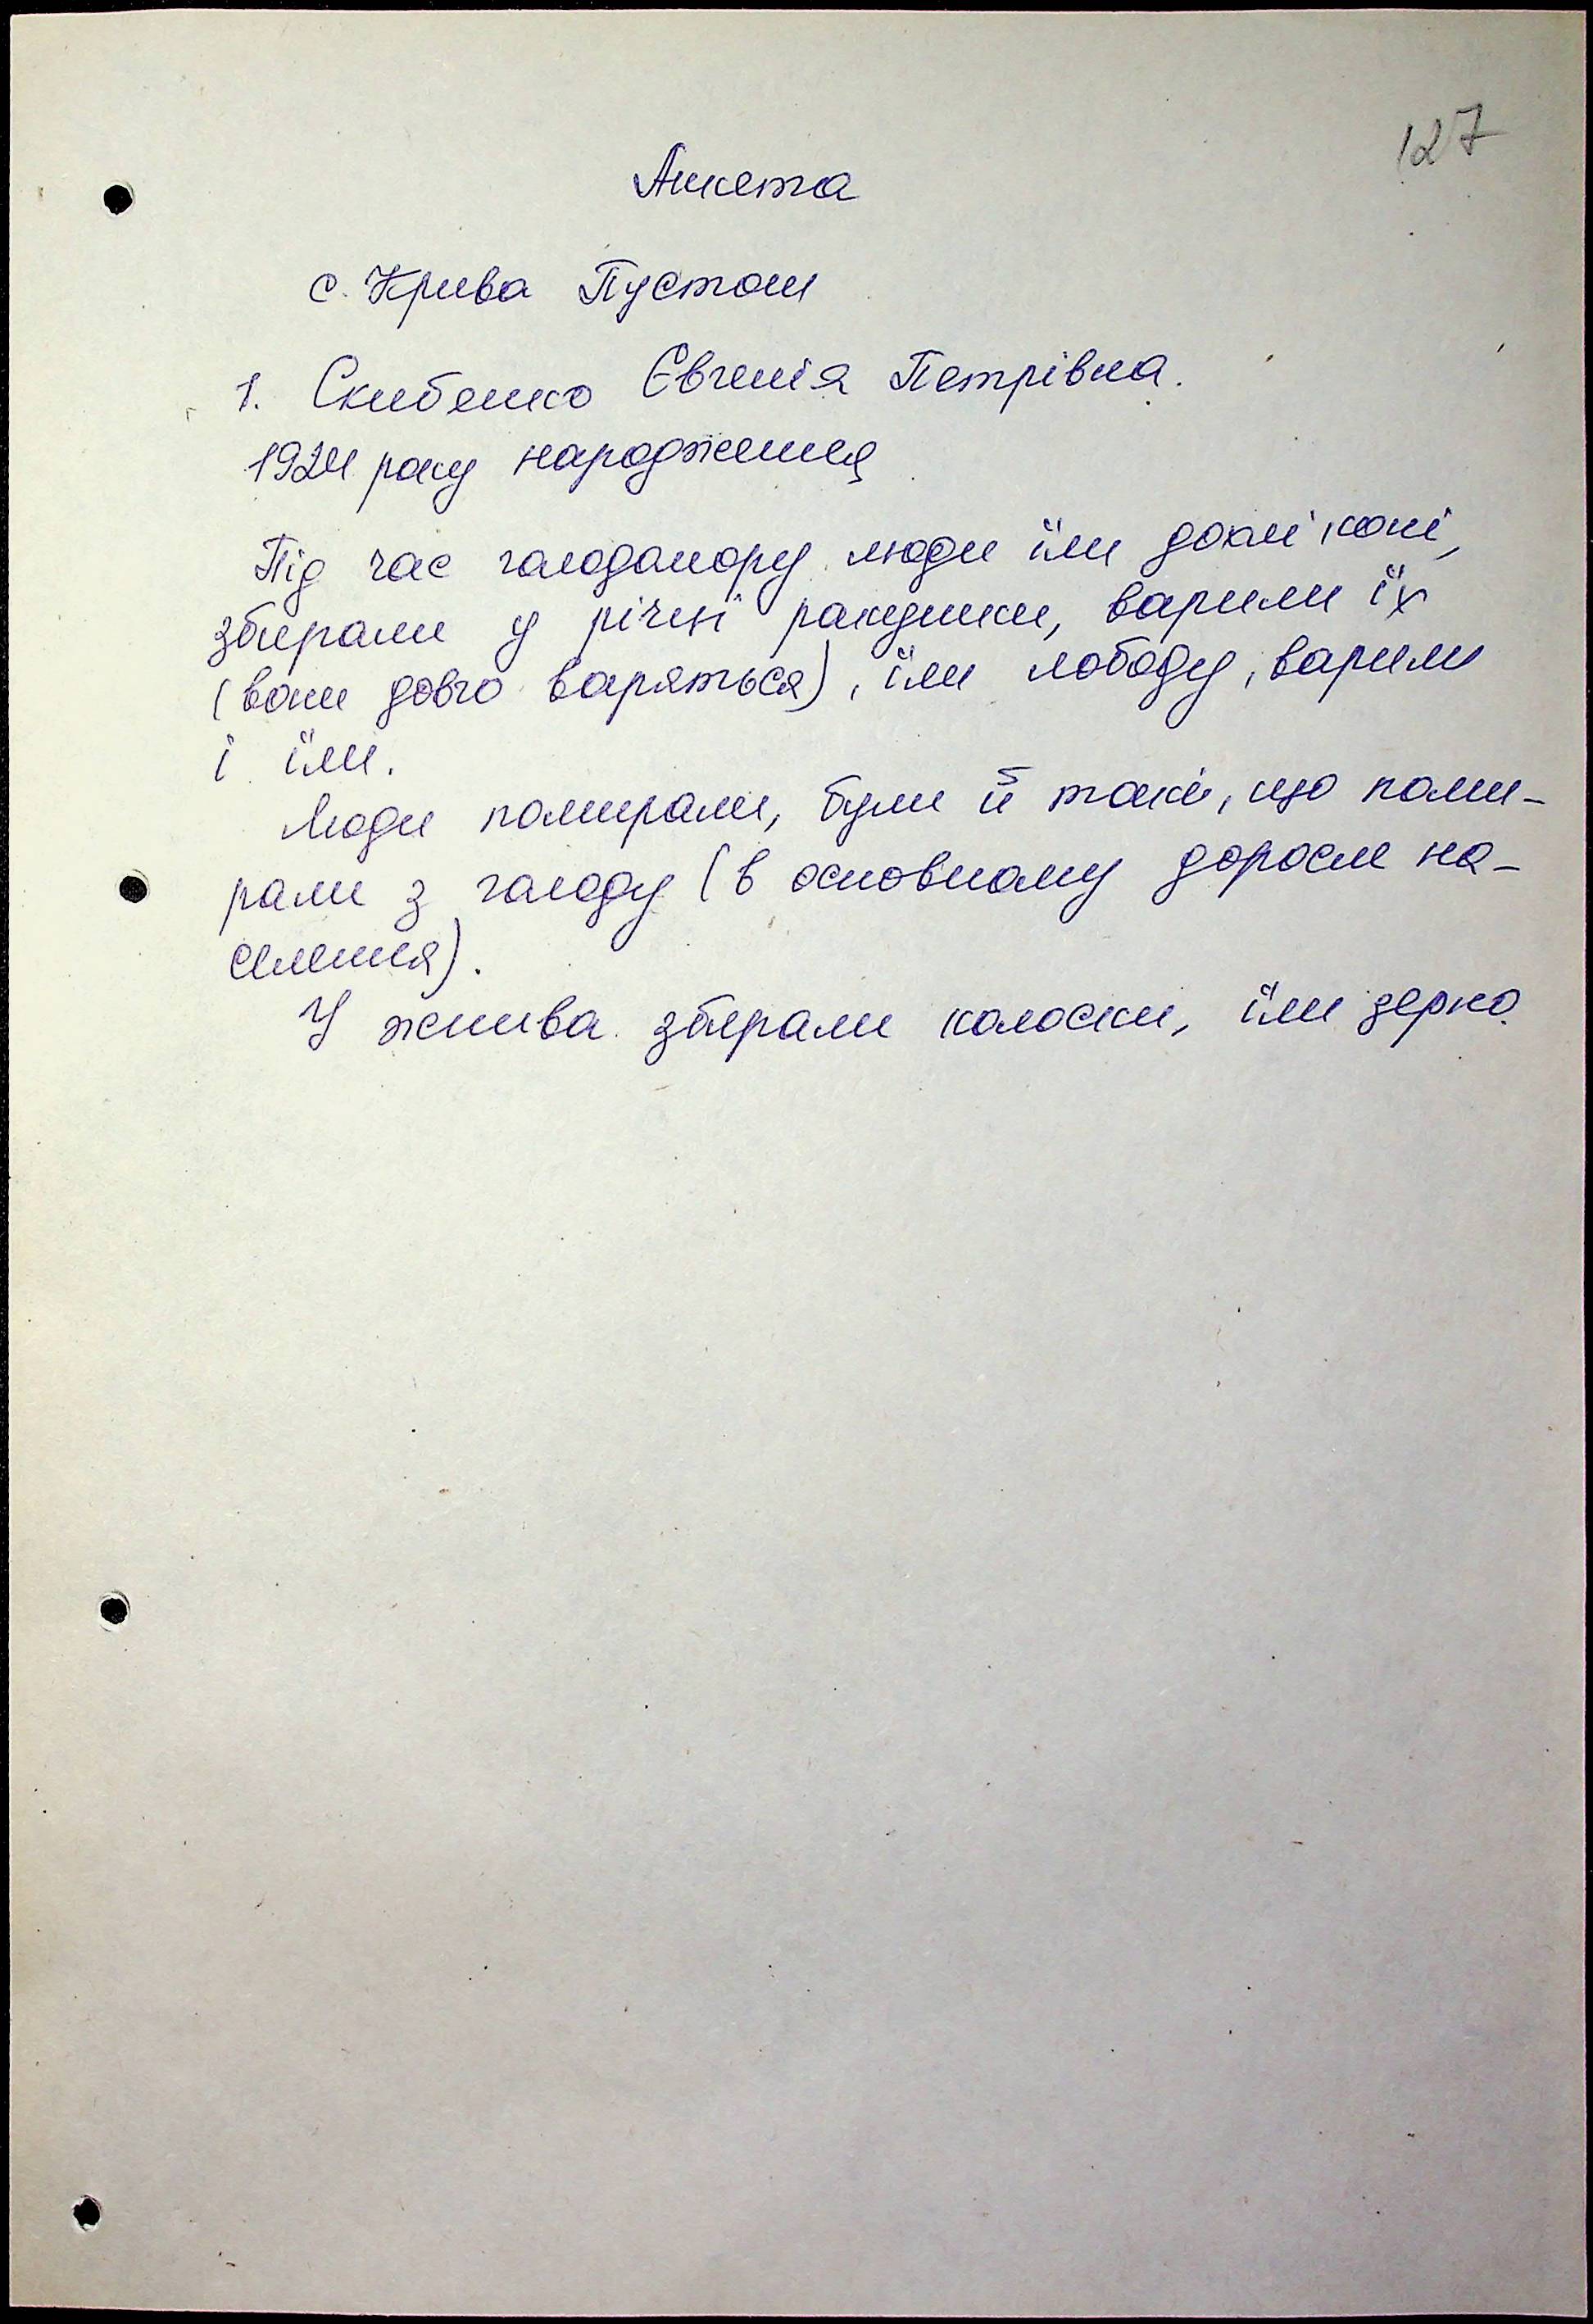 127
Анкета
с. Крива Пустош
1. Скибенко Євгенія Петрівна.
1924 року народження
Під час голодомору люди їли дохлі коні,
збирали у річці ракушки, варили їх
(вони довго варяться), їли лободу, варили
і їли.
Люди помирали, були й такі, що поми-
рали з голоду (в основному доросле на-
селення).
У жнива збирали колоски, їли зерно.